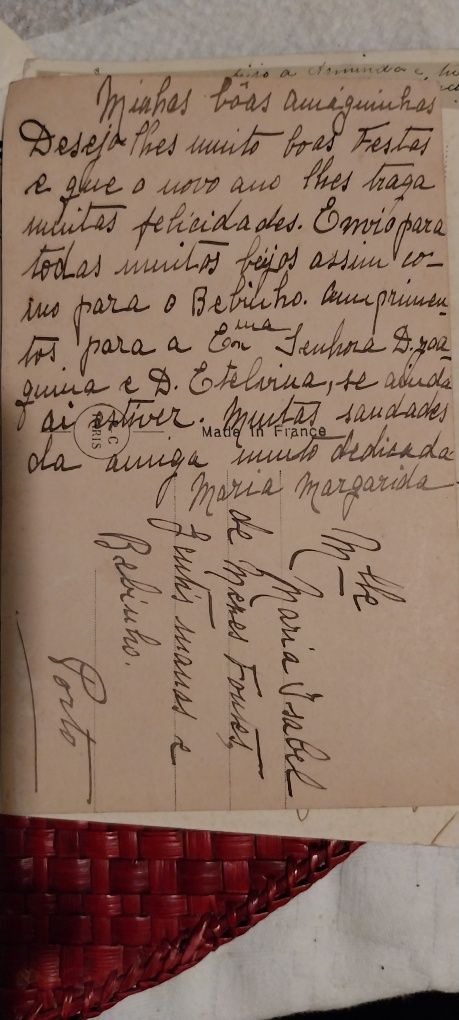 Minhas bôas amiguinhas
Desejo lhes muito boas Festas
e que o novo ano lhes traga
muitas felicidades. Envio para
todas muitos beijos assim co-
mo para o Bebinho. Cumprimen-
tos para a Exma Senhora D. Joa-
quina e D. Etelvina, se ainda
ai estiver. Muitas saudades
da amiga muito dedicada
Maria Margarida
PARIS
Made in France
Mlle
Maria Isabel
de Menes Fontes,
manas e
Bebinho.
Porto